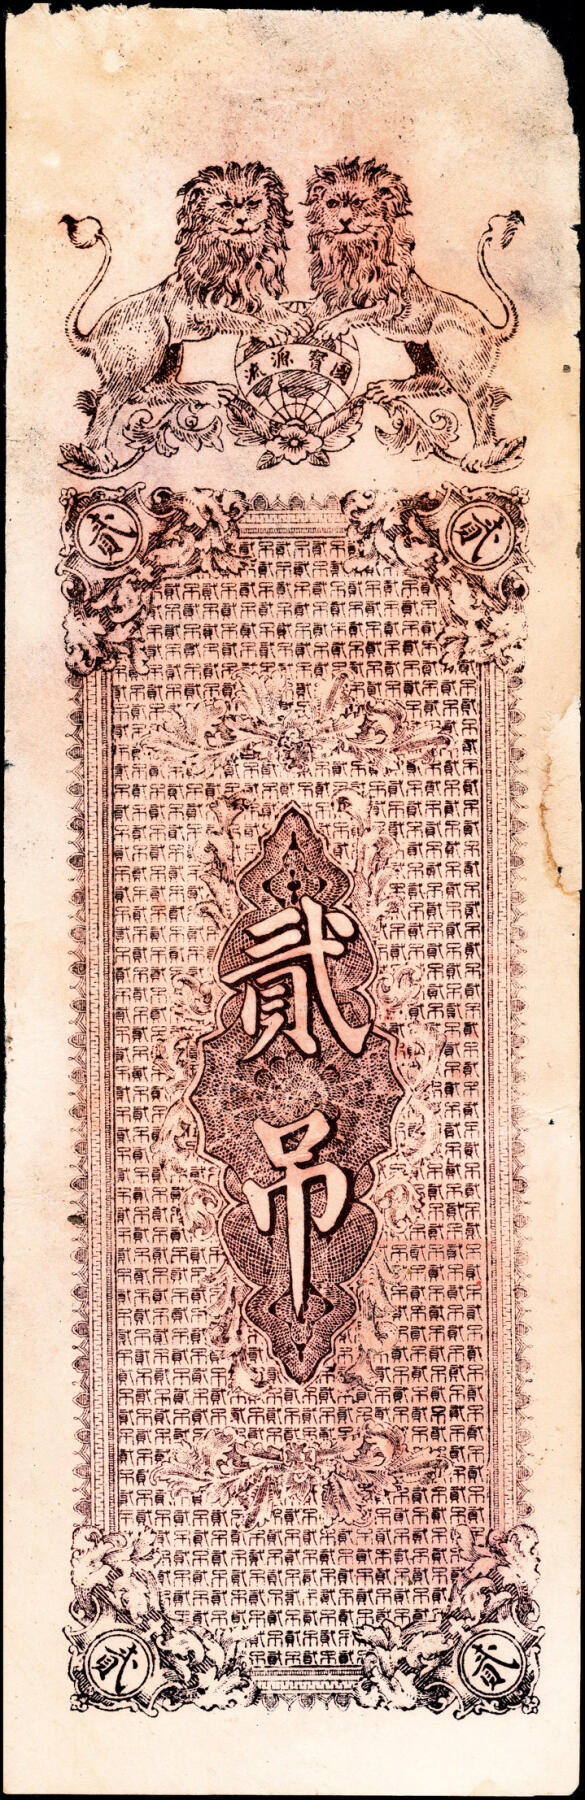 國寶源流
貳
貳
貳吊
貳
貳